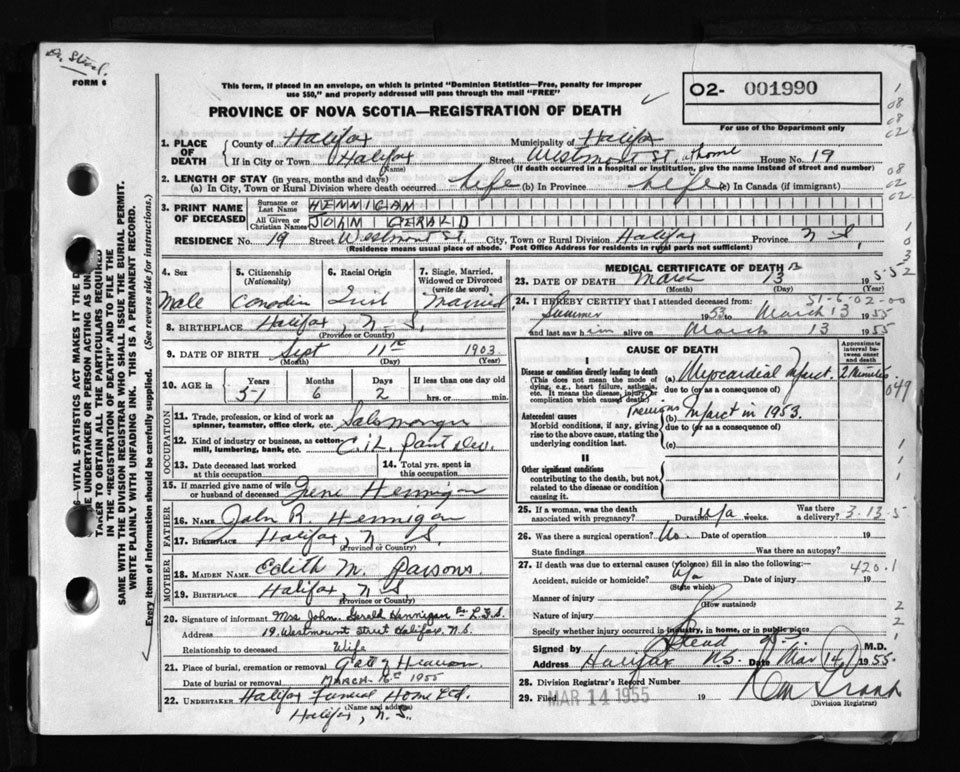 Dr. Steel.
FORM 6
This form, if placed in an envelope, on which is printed "Dominion Statistics—Free, penalty for improper
use $50," and properly addressed will pass through the mail "FREE"
PROVINCE OF NOVA SCOTIA—REGISTRATION OF DEATH
O2- 001990
For use of the Department only
1. PLACE OF DEATH
County of Halifax Municipality of Halifax
If in City or Town Halifax Street Westmount St. at home House No. 19
(Name) (If death occurred in a hospital or institution, give the name instead of street and number)
2. LENGTH OF STAY (in years, months and days)
(a) In City, Town or Rural Division where death occurred life (b) In Province life (c) In Canada (if immigrant)
3. PRINT NAME OF DECEASED
Surname or Last Name HENNIGAN
All Given or Christian Names JOHN GERALD
RESIDENCE No. 19 Street Westmount St, City, Town or Rural Division Halifax Province N S,
(Residence means usual place of abode. Post Office Address for residents in rural parts not sufficient)
4. Sex
Male
5. Citizenship
(Nationality)
Canadian
6. Racial Origin
Irish
7. Single, Married,
Widowed or Divorced
(write the word)
Married
8. BIRTHPLACE Halifax, N. S,
(Province or Country)
9. DATE OF BIRTH Sept 11th 1903
(Month) (Day) (Year)
10. AGE in Years Months Days If less than one day old
51 6 2 hrs. or min.
OCCUPATION
11. Trade, profession, or kind of work as
spinner, teamster, office clerk, etc. Salesmanager
12. Kind of industry or business, as cotton
mill, lumbering, bank, etc. C.I.L. paint Dev.
13. Date deceased last worked
at this occupation
14. Total yrs. spent in
this occupation
15. If married give name of wife
or husband of deceased Irene Hennigan
FATHER
16. NAME John R. Hennigan
17. BIRTHPLACE Halifax, N S.
(Province or Country)
MOTHER
18. MAIDEN NAME Edith M. Parsons
19. BIRTHPLACE Halifax, N S
(Province or Country)
20. Signature of informant Mrs John Gerald Hannigan Per L.F.S.
Address 19 Westmount Street Halifax, N.S.
Relationship to deceased Wife
21. Place of burial, cremation or removal Gate of Heaven
Date of burial or removal MARCH 16th 1955
22. UNDERTAKER Halifax Funeral Home Ltd.
(Name and address)
Halifax, N. S.
MEDICAL CERTIFICATE OF DEATH
23. DATE OF DEATH March 13
(Month) (Day) (Year)
24. I HEREBY CERTIFY that I attended deceased from: 51-6-02-00
Summer 1953 to March 13 1955
and last saw him alive on March 13 1955
CAUSE OF DEATH
Approximate
interval be-
tween onset
and death
I
Disease or condition directly leading to death
(This does not mean the mode of
dying, e.g., heart failure, asthenia,
etc. It means the disease, injury, or
complication which caused death)
(a) Myocardial Infarct. 2 Minutes.
due to (or as a consequence of)
049
Antecedent causes
Morbid conditions, if any, giving
rise to the above cause, stating the
underlying condition last.
(b) Previous Infarct in 1953.
due to (or as a consequence of)
(c)
II
Other significant conditions
contributing to the death, but not
related to the disease or condition
causing it.
25. If a woman, was the death
associated with pregnancy? Duration n/a weeks. Was there
a delivery? 3-13-5
26. Was there a surgical operation? No. Date of operation 19
State findings Was there an autopsy?
27. If death was due to external causes (violence) fill in also the following:— 420.1
Accident, suicide or homicide? n/a Date of injury 19
(State which)
Manner of injury
(How sustained)
Nature of injury
Specify whether injury occurred in industry, in home, or in public place
Signed by M.D.
Address Halifax NS. Date Mar 14 1955.
28. Division Registrar's Record Number
29. Filed MAR 14 1955 19
(Division Registrar)
VITAL STATISTICS ACT MAKES IT THE D
UNDERTAKER OR PERSON ACTING AS UN
TAKER TO OBTAIN ALL THE PARTICULARS REQUIRED
IN THE "REGISTRATION OF DEATH" AND TO FILE THE
SAME WITH THE DIVISION REGISTRAR WHO SHALL ISSUE THE BURIAL PERMIT.
WRITE PLAINLY WITH UNFADING INK. THIS IS A PERMANENT RECORD.
Every item of information should be carefully supplied. (See reverse side for instructions.)